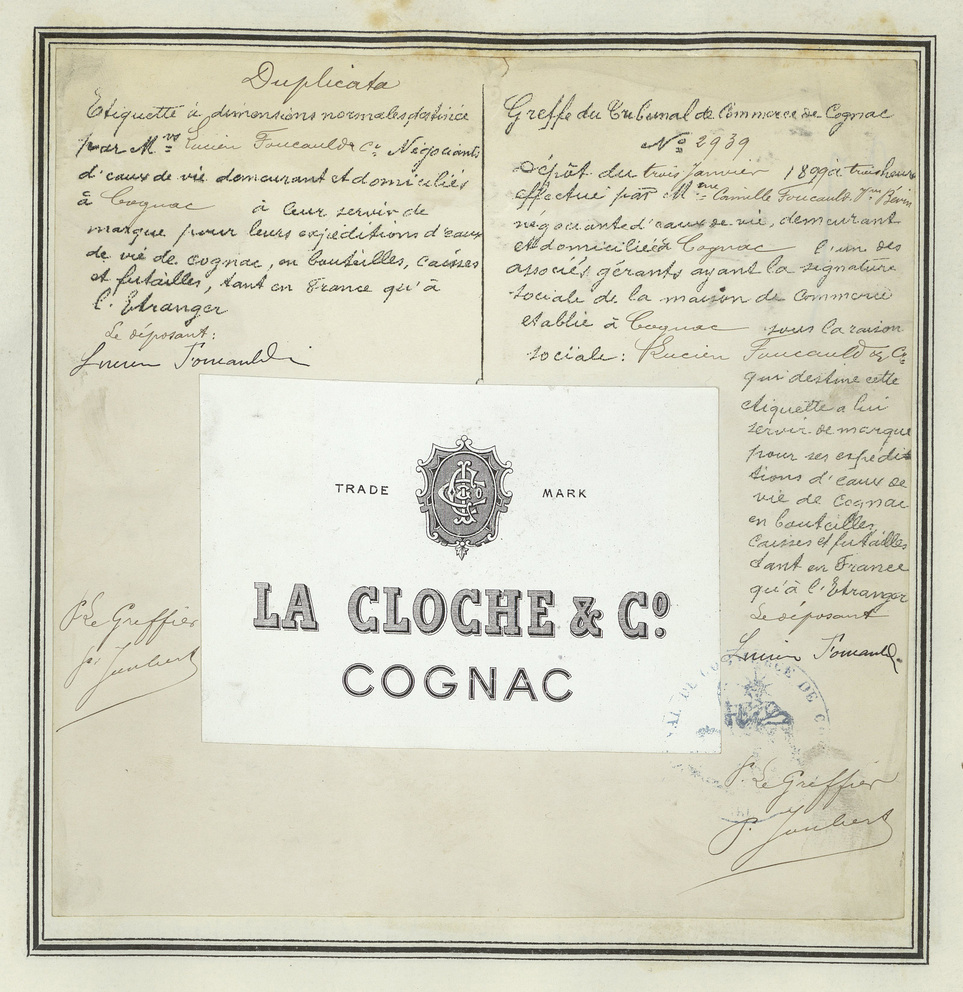 Duplicata
Etiquette à dimensions normales, destinée
par Mrs Lucien Foucauld & Cie Négociants
d'eaux de vie demeurant et domiciliés
à Cognac à leur servir de
marque pour leurs expéditions d'eaux
de vie de cognac, en bouteilles, caisses
et futailles, tant en France qu'à
l'Etranger
Le déposant:
Lucien Foucauld
Pr Le Greffier
Joubert
Greffe du Tribunal de Commerce de Cognac
No 2939
Dépôt du trois Janvier 1899 à trois heures
effectué par Mme Camille Foucauld Vve
négociante d'eaux de vie, demeurant
et domiciliée à Cognac l'un des
associés gérants ayant la signature
sociale de la maison de Commerce
etablie à Cognac sous la raison
sociale: Lucien Foucauld & Cie
qui destine cette
etiquette a lui
servir de marque
pour ses expédi
tions d'eaux de
vie de Cognac
en bouteilles,
caisses et futailles
tant en France
qu'à l'Etranger
Le déposant
Lucien Foucauld
TRADE MARK
LA CLOCHE & Co.
COGNAC
DE COMMERCE DE
Pr Le Greffier
Joubert